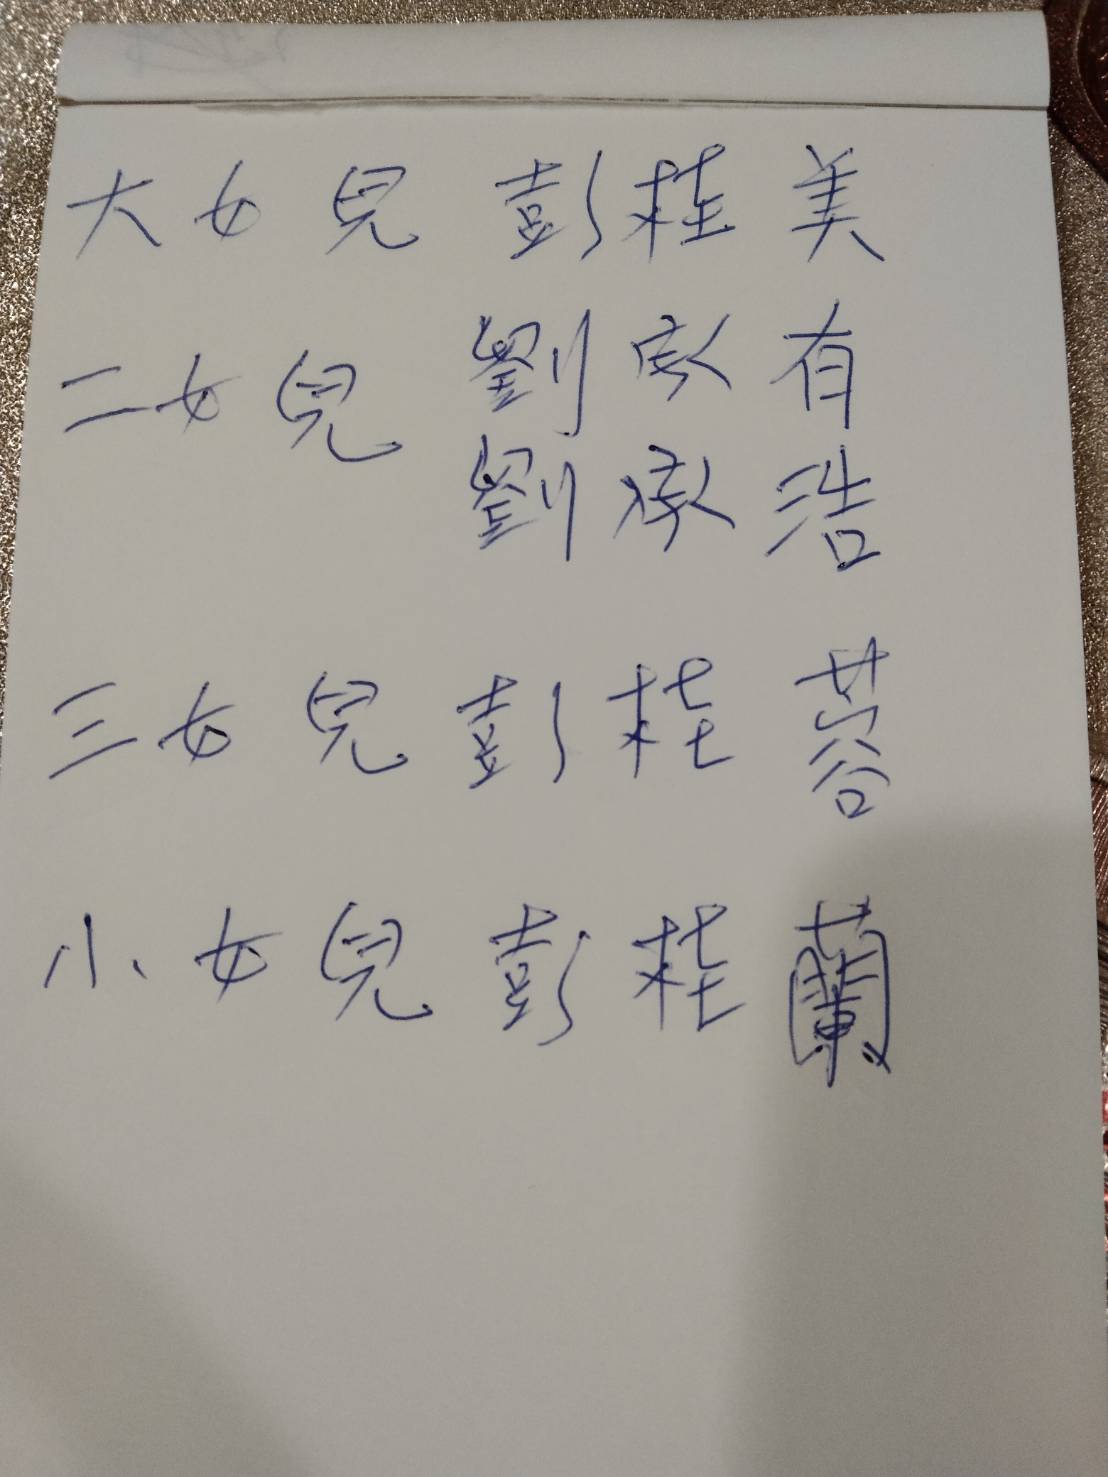 大女兒 彭桂美
二女兒 劉承有
劉承浩
三女兒 彭桂蓉
小女兒 彭桂蘭